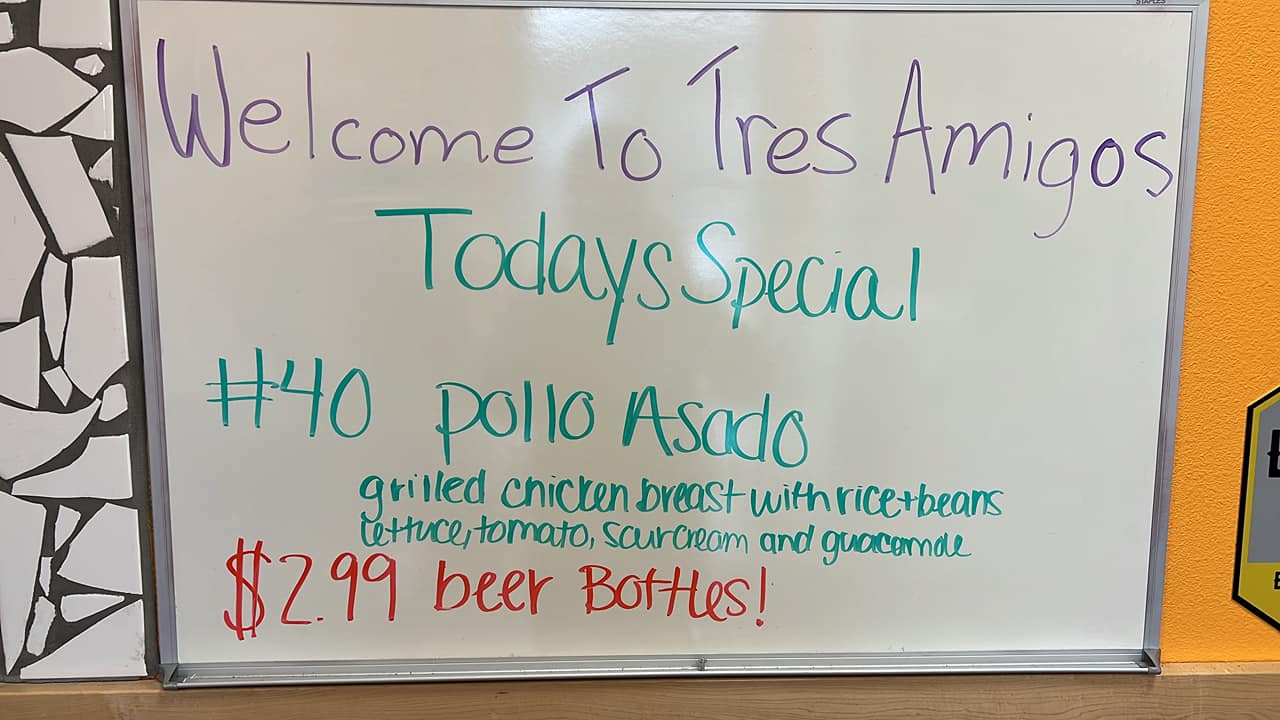 STAPLES
Welcome To Tres Amigos
Todays Special
#40 pollo Asado
grilled chicken breast with rice + beans
lettuce, tomato, sour cream and guacamole
$2.99 beer Bottles!